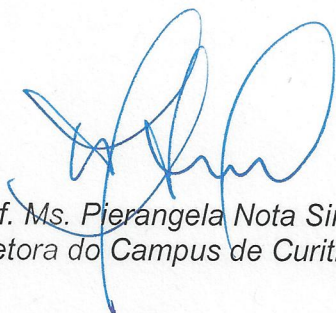 f. Ms. Pierangela Nota Sin
etora do Campus de Curit